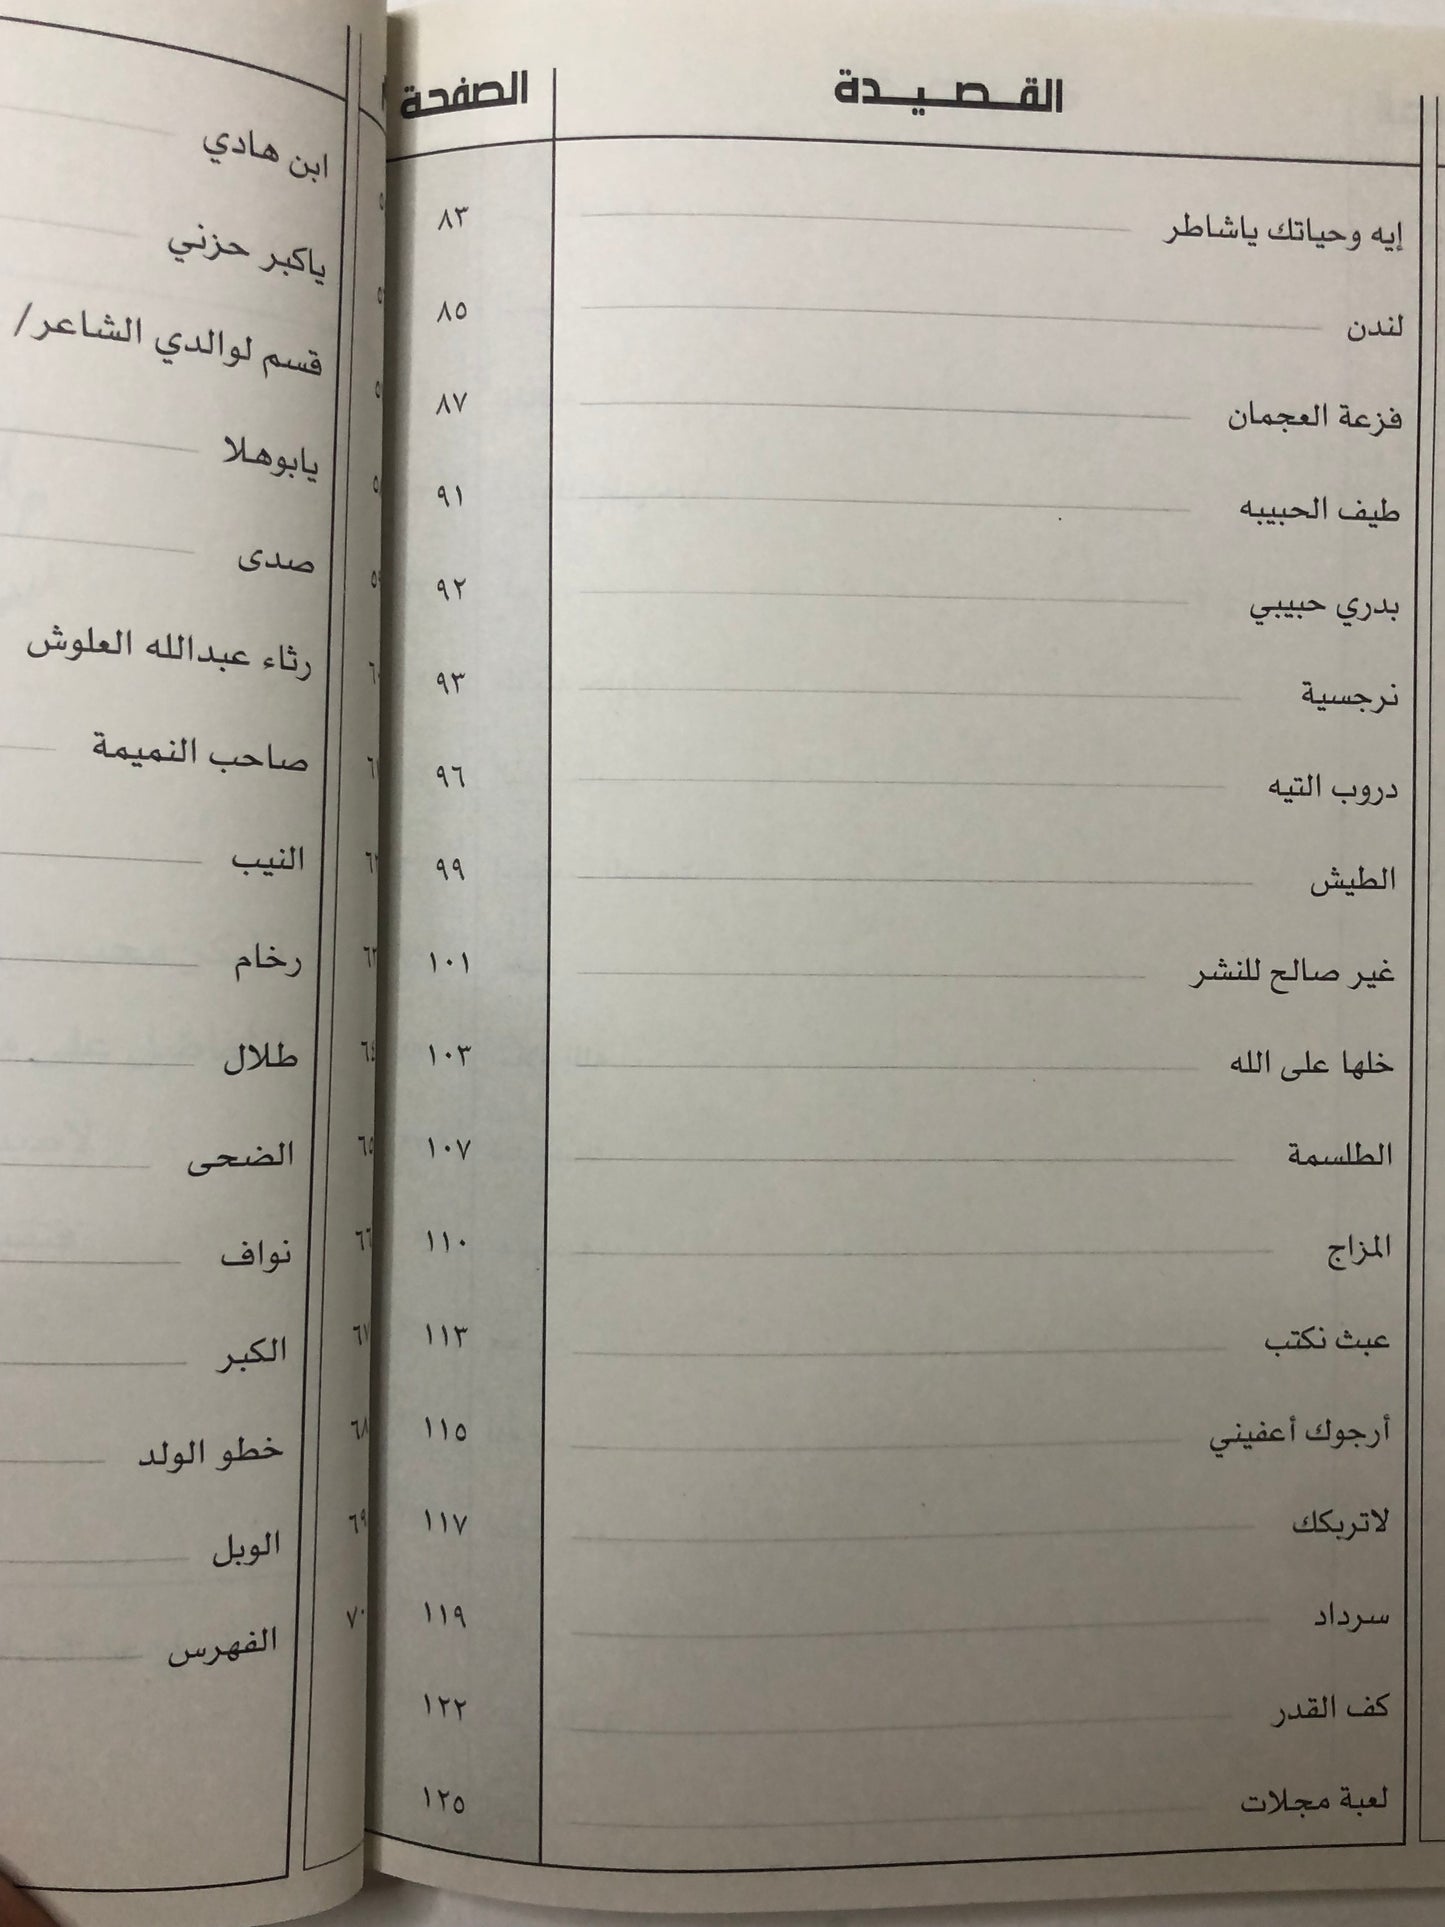 القصيدة الصفحة
إيه وحياتك ياشاطر ٨٣
لندن ٨٥
فزعة العجمان ٨٧
طيف الحبيبه ٩١
بدري حبيبي ٩٢
نرجسية ٩٣
دروب التيه ٩٦
الطيش ٩٩
غير صالح للنشر ١٠١
خلها على الله ١٠٣
الطلسمة ١٠٧
المزاج ١١٠
عبث نكتب ١١٣
أرجوك أعفيني ١١٥
لاتربكك ١١٧
سرداد ١١٩
كف القدر ١٢٢
لعبة مجلات ١٢٥
ابن هادي
ياكبر حزني
قسم لوالدي الشاعر/
يابوهلا
صدى
رثاء عبدالله العلوش
صاحب النميمة
النيب
رخام
طلال
الضحى
نواف
الكبر
خطو الولد
الوبل
الفهرس